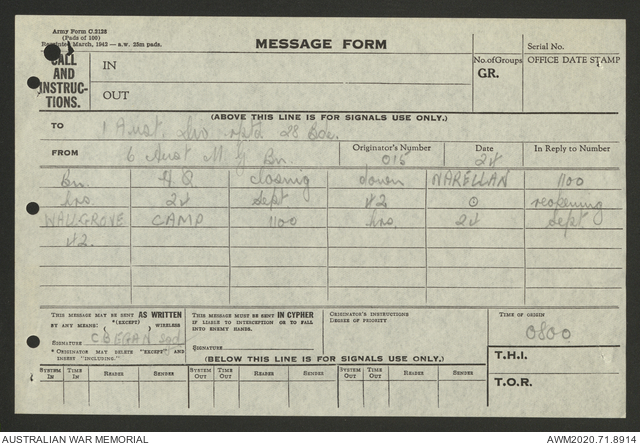 Army Form C.2128
(Pads of 100)
Reprinted March, 1942 — a.w. 25m pads.
MESSAGE FORM
Serial No.
CALL AND INSTRUCTIONS.
IN
OUT
No. of Groups
GR.
OFFICE DATE STAMP
(ABOVE THIS LINE IS FOR SIGNALS USE ONLY.)
TO 1 Aust. Div rptd 28 Bde.
FROM 6 Aust M G Bn.
Originator's Number 015
Date 24
In Reply to Number
Bn. H.Q closing down NARELLAN 1100
hrs 24 Sept 42 ⊙ reopening
WALLGROVE CAMP 1100 hrs 24 Sept
42.
THIS MESSAGE MAY BE SENT AS WRITTEN
BY ANY MEANS: *(EXCEPT) ( ) WIRELESS
SIGNATURE C B EGAN Sgd
* ORIGINATOR MAY DELETE "EXCEPT" AND
INSERT "INCLUDING."
THIS MESSAGE MUST BE SENT IN CYPHER
IF LIABLE TO INTERCEPTION OR TO FALL
INTO ENEMY HANDS.
SIGNATURE
ORIGINATOR'S INSTRUCTIONS
DEGREE OF PRIORITY
TIME OF ORIGIN
0800
T.H.I.
T.O.R.
(BELOW THIS LINE IS FOR SIGNALS USE ONLY.)
SYSTEM IN TIME IN READER SENDER SYSTEM OUT TIME OUT READER SENDER SYSTEM OUT TIME OUT READER SENDER
AUSTRALIAN WAR MEMORIAL
AWM2020.71.8914